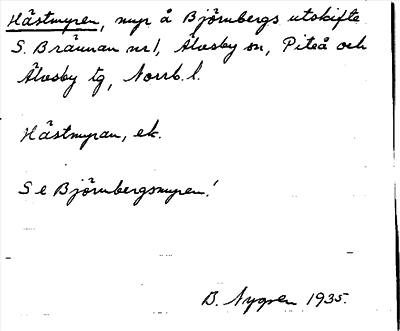 Hästmyren, myr å Björnbergs utskifte
S. Brännan nr 1, Älvsby sn, Piteå och
Älvsby tg, Norrb. l.
Hästmyran, ek.
Se Björnbergsmyren!
B. Nygren 1935.